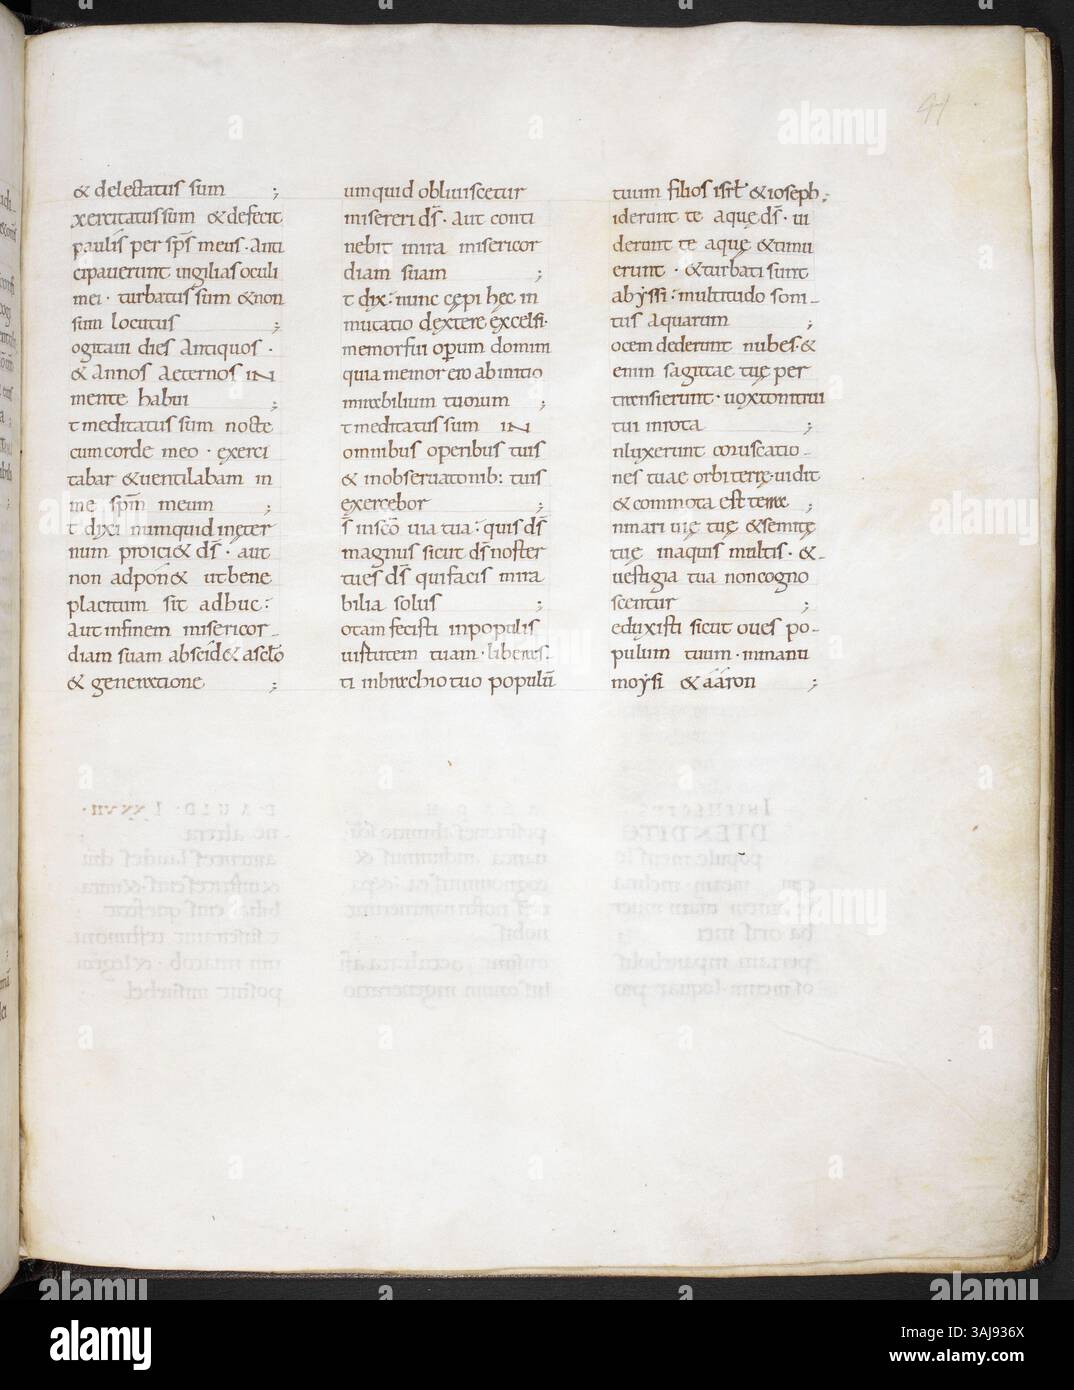 41
& delectatus sum ;
xercitatus sum & defecit
paulis per sp̅s meus · anti
cipauerunt uigilias oculi
mei · turbatus sum & non
sum locutus ;
ogitaui dies antiquos ·
& annos aeternos IN
mente habui ;
t meditatus sum nocte
cum corde meo · exerci
tabar & uentilabam in
me sp̅m meum ;
t dixi numquid in &er
num proici& d̅s · aut
non adpon& ut bene
placitum sit adhuc :
Aut in finem misericor-
diam suam abscid& a
& generatione ;
um quid obliuiscetur
misereri d̅s · aut conti
nebit in ira misericor
diam suam ;
t dix: nunc cępi hęc in
mutatio dęxterę ęxcelsi·
memor fui operum domini
quia memor ero ab initio
mirabilium tuorum ;
t meditatus sum IN
omnibus operibus tuis
& in obseruationib: tuis
exercebor ;
s̅ in sco̅ uia tua : quis d̅s
magnus sicut d̅s noster
tu es d̅s qui facis mira
bilia solus ;
otam fecisti in populis
uirtutem tuam · liberas-
ti in brachio tuo populu̅
tuum filios isrl̅ & ioseph ;
iderunt te aque d̅s · ui
derunt te aquę & timu
erunt · & turbati sunt
abẏssi : multitudo soni-
tus aquarum ;
ocem dederunt nubes · &
enim sagittae tuę per
transierunt · uox tonitrui
tui in rota ;
nluxerunt coruscatio-
nes tuae orbi terrę · uidit
& commota est terra ;
n mari uię tuę & semitę
tuę in aquis multis · &-
uestigia tua non cogno
scentur ;
eduxisti sicut oues po-
pulum tuum · in manu
moẏsi & ááron ;
alamy
a
alamy
3AJ936X
www.alamy.com